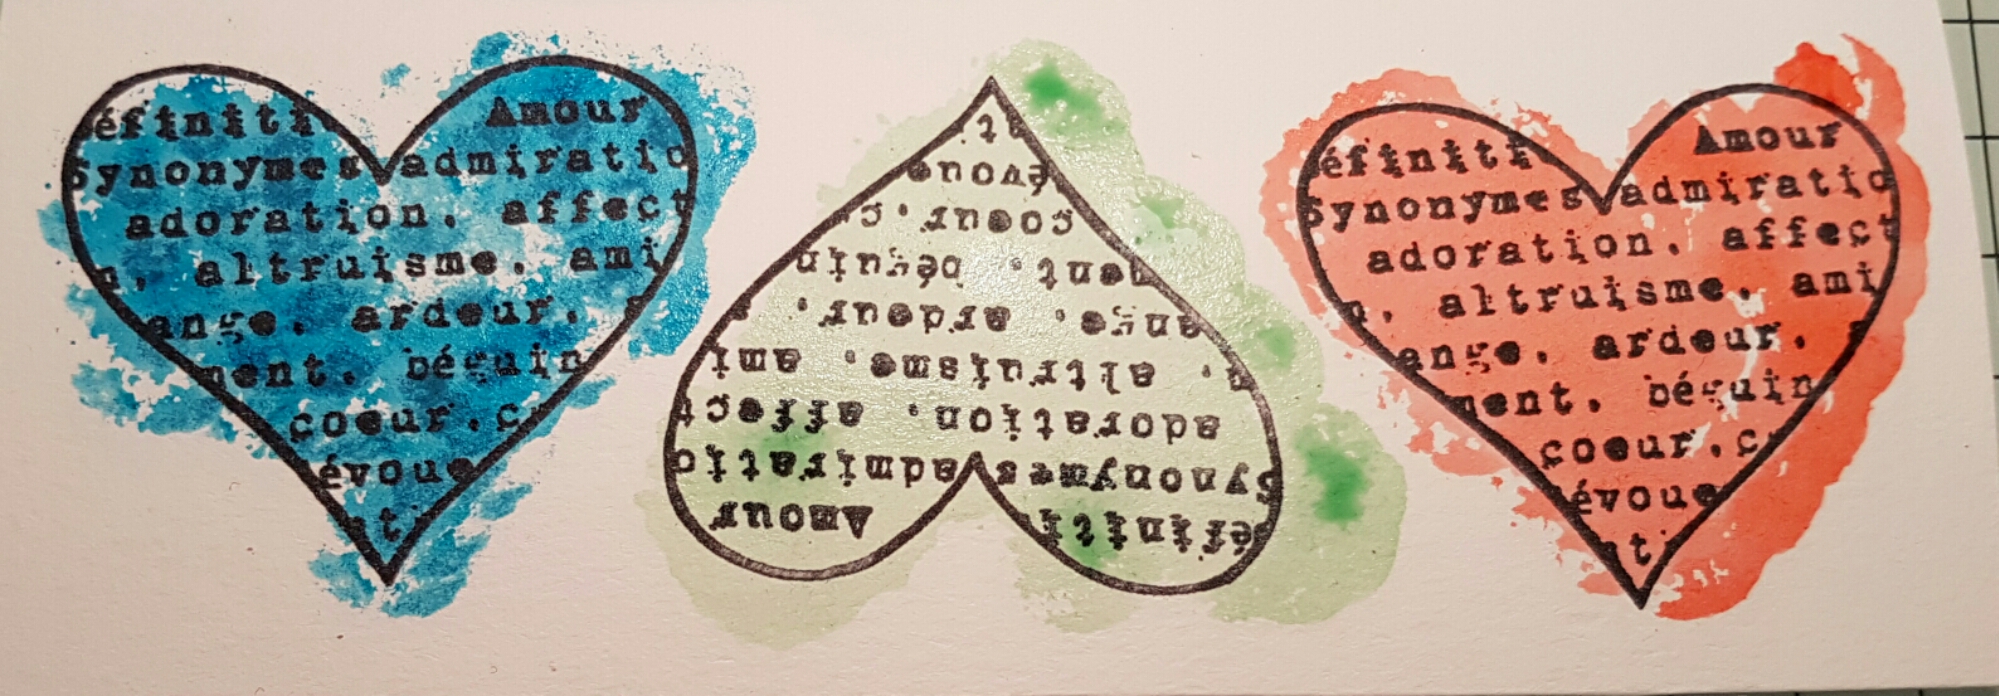 éfiniti Amour
Synonymes admiratio
adoration, affect
n, altruisme, ami
ange, ardeur,
ment, béguin
coeur, c
évoue
t
t.
évoue
coeur, c
ment, béguin
ange, ardeur,
n, altruisme, ami
adoration, affect
Synonymes admiratio
éfiniti Amour
éfiniti Amour
Synonymes admiratio
adoration, affect
n, altruisme, ami
ange, ardeur,
ment, béguin
coeur, c
évoue
t